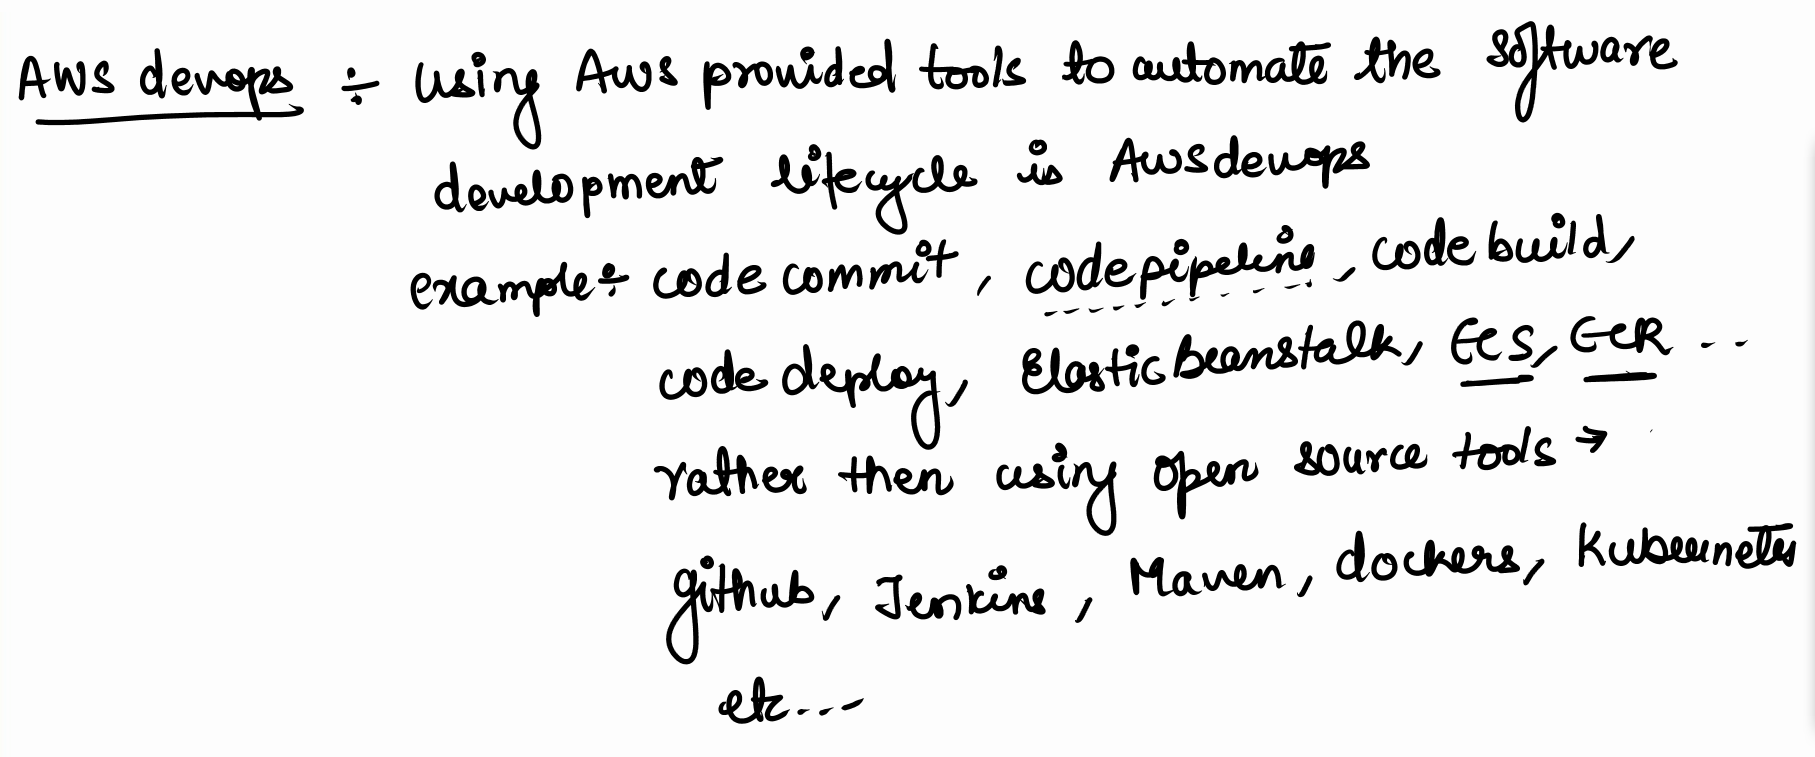 AWS devops ÷ using Aws provided tools to automate the software
development lifecycle is Aws devops
example÷ code commit, codepipeline, code build,
code deploy, Elastic Beanstalk, ECS, ECR ...
rather then using open source tools →
github, Jenkins, Maven, dockers, Kubernetes
etc....